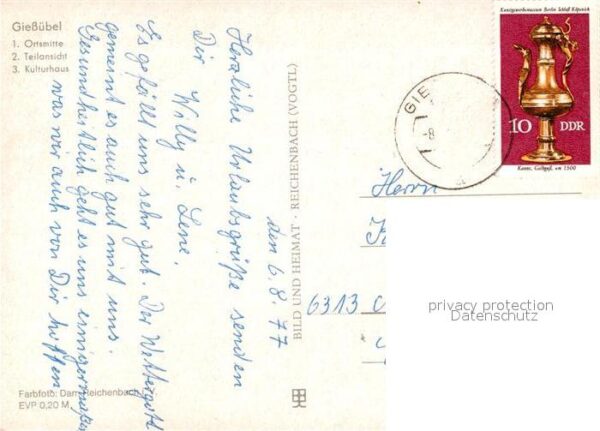 Gießübel
1. Ortsmitte
2. Teilansicht
3. Kulturhaus
den 6.8.77
Herzliche Urlaubsgrüße senden
Dir Willy u. Lene.
Es gefällt uns sehr gut. Der Wettergott
gemeint es auch gut mit uns.
Gesundheitlich geht es uns einigermaßen
was wir auch von Dir hoffen
Farbfoto: Darr, Reichenbach i. V.
EVP 0,20 M
BILD UND HEIMAT · REICHENBACH (VOGTL)
Kunstgewerbemuseum Berlin Schloß Köpenick
10 DDR
Kanne, Gelbguß, um 1500
GIE
-8
Herrn
6313
privacy protection
Datenschutz